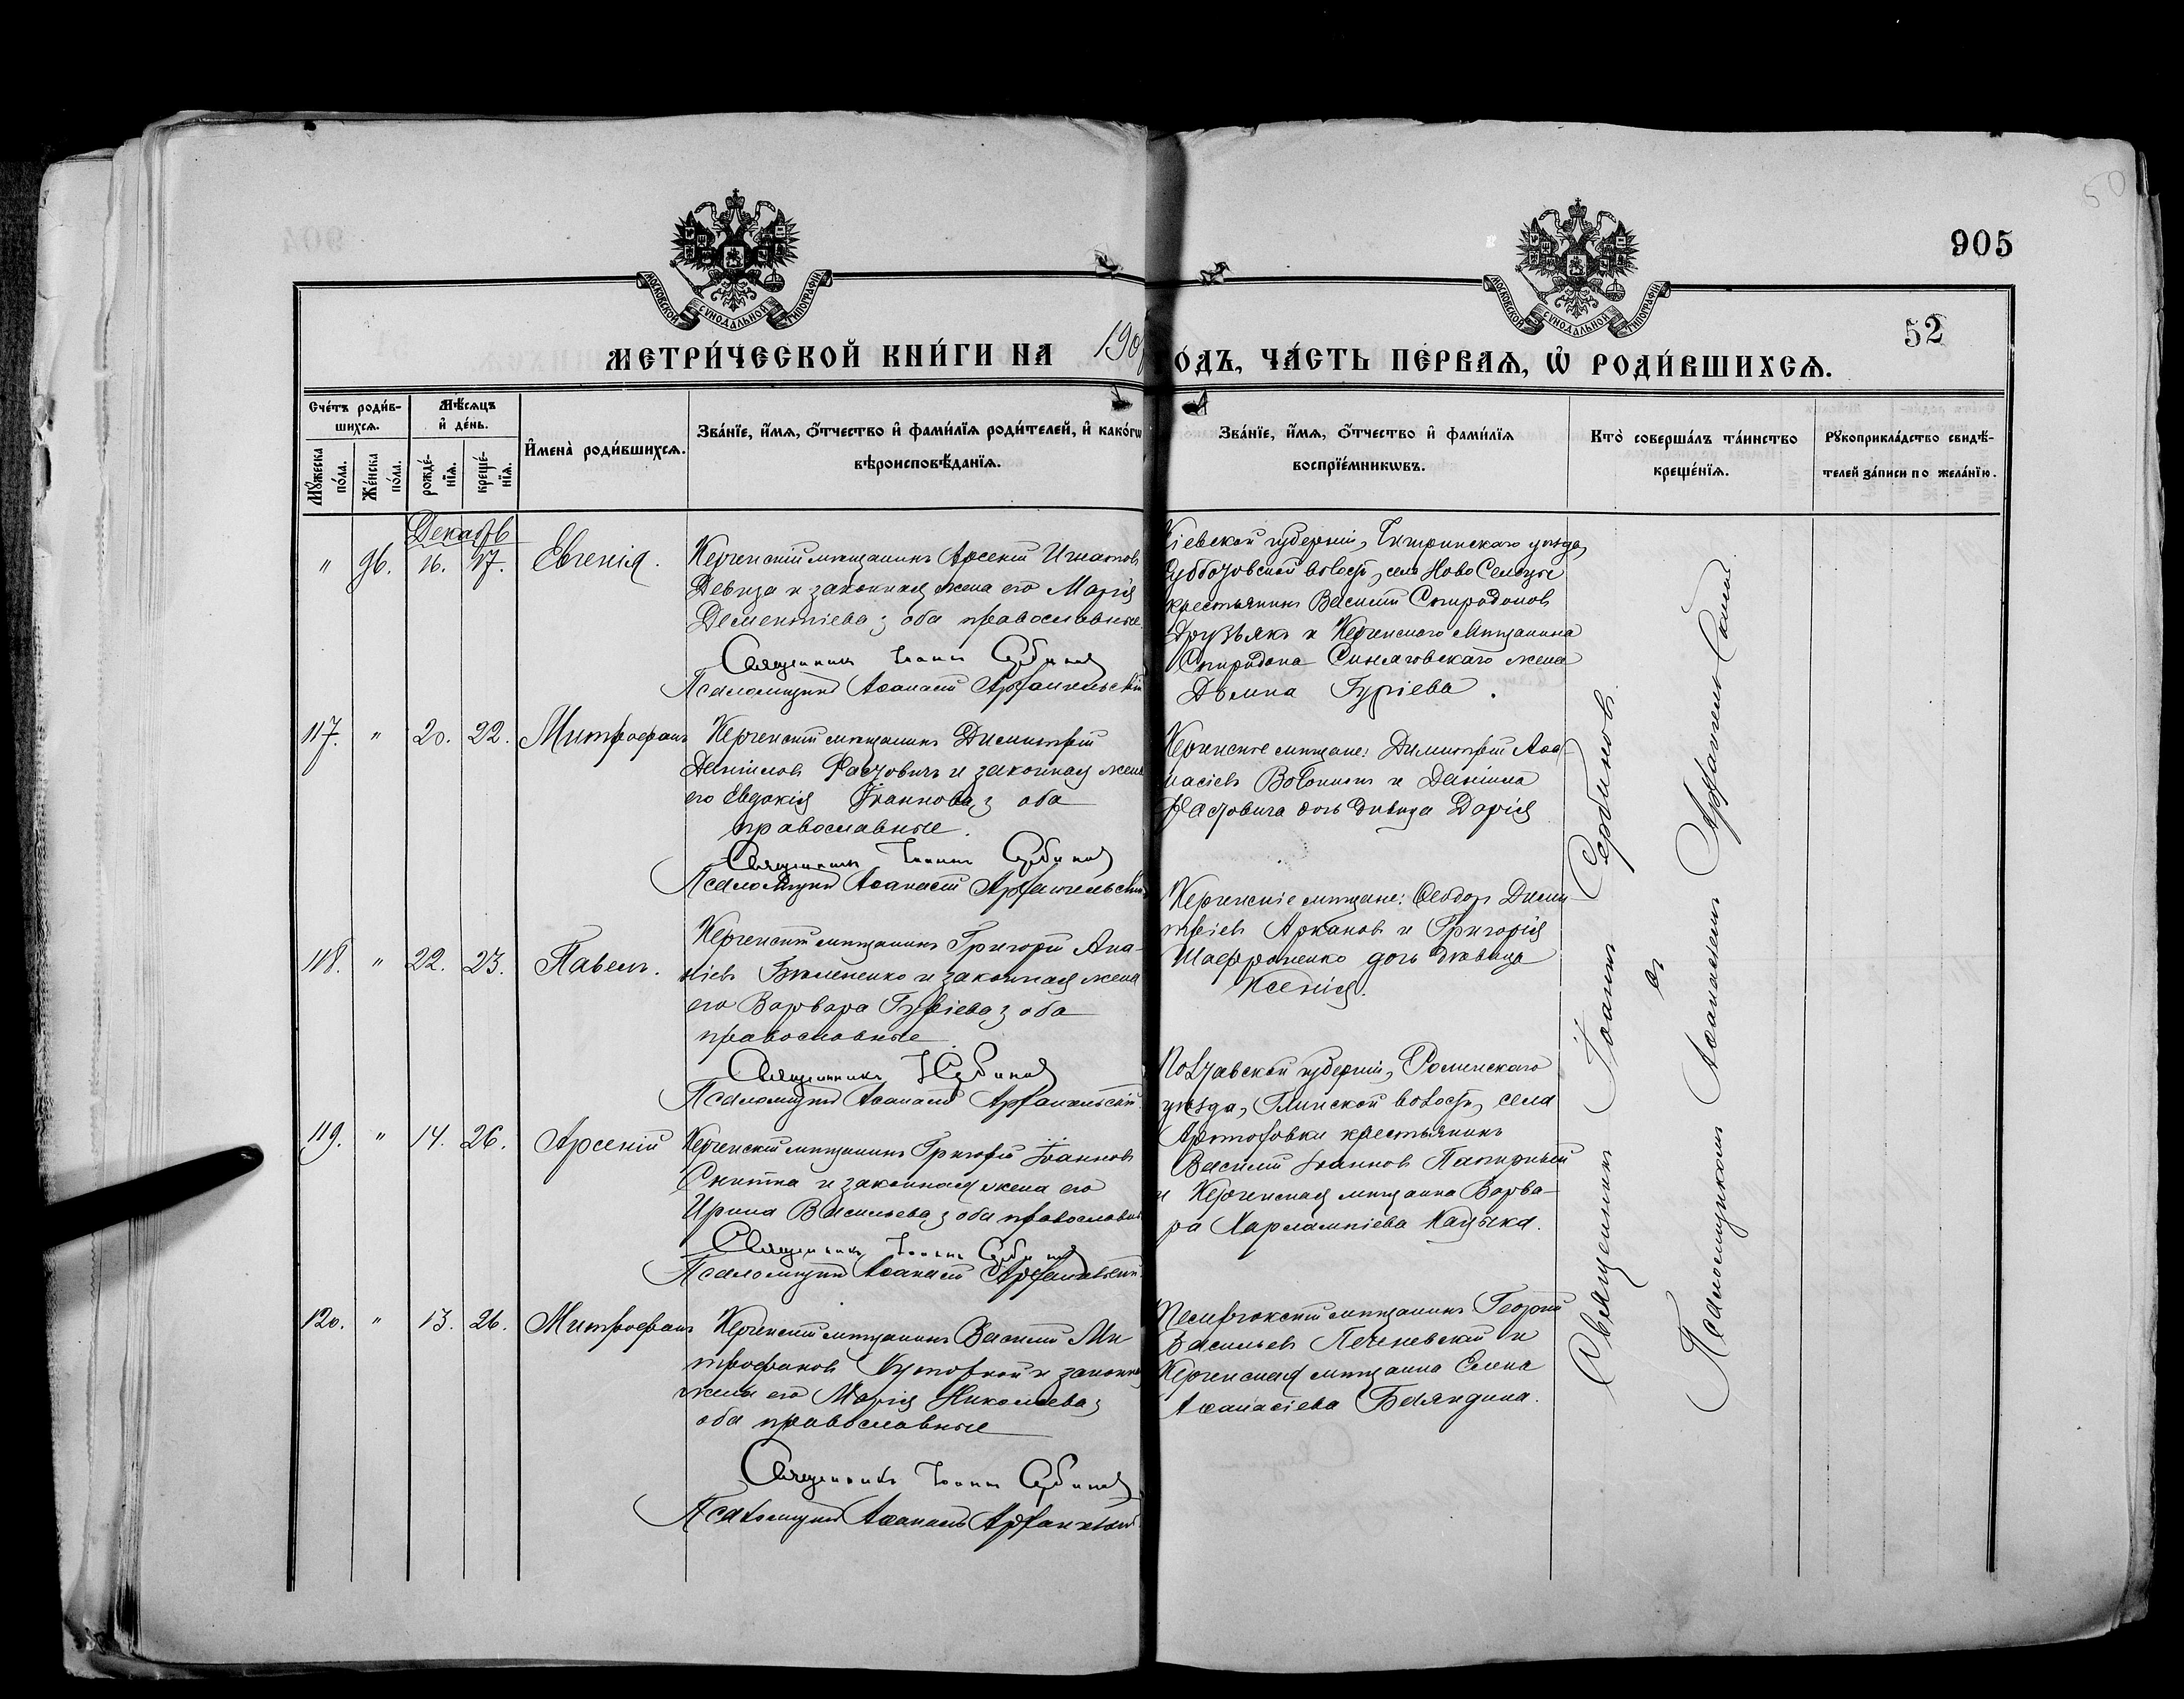 905
52
МОСКОВСКОЙ СѴНОДАЛЬНОЙ ТИПОГРАФІИ
МОСКОВСКОЙ СѴНОДАЛЬНОЙ ТИПОГРАФІИ
МЕТРИ́ЧЕСКОЙ КНИ́ГИ НА 190
О́ДЪ, ЧА́СТЬ ПЕ́РВАѦ, Ѡ҆ РОДИ́ВШИХСѦ.
Сче́тъ роди́в-
шихсѧ.
Мѣ́сѧцъ
и҆ де́нь.
Мꙋ́жеска
по́ла.
Же́нска
по́ла.
рожде́-
нїѧ.
креще́-
нїѧ.
И҆мена̀ роди́вшихсѧ.
Зва́нїе, и҆́мѧ, ѻ҆́тчество и҆ фами́лїѧ роди́телей, и҆ како́гѡ
вѣроисповѣ́данїѧ.
Зва́нїе, и҆́мѧ, ѻ҆́тчество и҆ фами́лїѧ
воспрїе́мникѡвъ.
Кто̀ соверша́лъ та́инство
креще́нїѧ.
Рꙋкоприкла́дство свидѣ́-
телей за́писи по жела́нїю.
Декабрь
" 96. 16. 17. Евгенія.
Керченскій мѣщанинъ Арсеній Игнатовъ
Девица и законная жена его Марія
Дементіева; оба православные.
Священникъ Іоаннъ Сербиновъ
Псаломщикъ Аѳанасій Архангельскій
Кіевской губерніи, Чигиринскаго уѣзда,
Субботовской волости, села Ново Селицы
крестьянинъ Василій Спиридоновъ
Друзьякъ и Керченскаго мѣщанина
Спиридона Синяговскаго жена
Домна Гуріева.
117. " 20. 22. Митрофанъ
Керченскій мѣщанинъ Димитрій
Даніиловъ Фастовичъ и законная жена
его Евдокія Іоаннова; оба
православные.
Священникъ Іоаннъ Сербиновъ
Псаломщикъ Аѳанасій Архангельскій
Керченскіе мѣщане: Димитрій Аѳа-
насіевъ и Даніила
Фастовича дочь дѣвица Дарія
118. " 22. 23. Павелъ.
Керченскій мѣщанинъ Григорій Ана-
ніевъ и законная жена
его Варвара Гуріева; оба
православные
Священникъ І Сербиновъ
Псаломщикъ Аѳанасій Архангельскій
Керченскіе мѣщане: Ѳеодоръ Дими-
тріевъ Аркановъ и Григорія
Шафраненко дочь дѣвица
Ксенія.
119. " 14. 26. Арсеній
Керченскій мѣщанинъ Григорій Іоанновъ
Скитка и законная жена его
Ирина Васильева; оба православные
Священникъ Іоаннъ Сербиновъ
Псаломщикъ Аѳанасій Архангельскій
Полтавской губерніи, Роменскаго
уѣзда, Глинской волости, села
Артополовки крестьянинъ
Василій Іоанновъ
и Керченская мѣщанка Варва-
ра Харлампіева Кацыка.
120. " 13. 26. Митрофанъ
Керченскій мѣщанинъ Василій Ми
трофановъ и законная
жена его Марія Николаева;
оба православные
Священникъ Іоаннъ Сербиновъ
Псаломщикъ Аѳанасій Архангельскій
мѣщанинъ Георгій
Васильевъ Печеневскій и
Керченская мѣщанка Елена
Аѳанасіева Баляндина.
Священникъ Іоаннъ Сербиновъ
съ
Псаломщикомъ Аѳанасіемъ Архангельскимъ